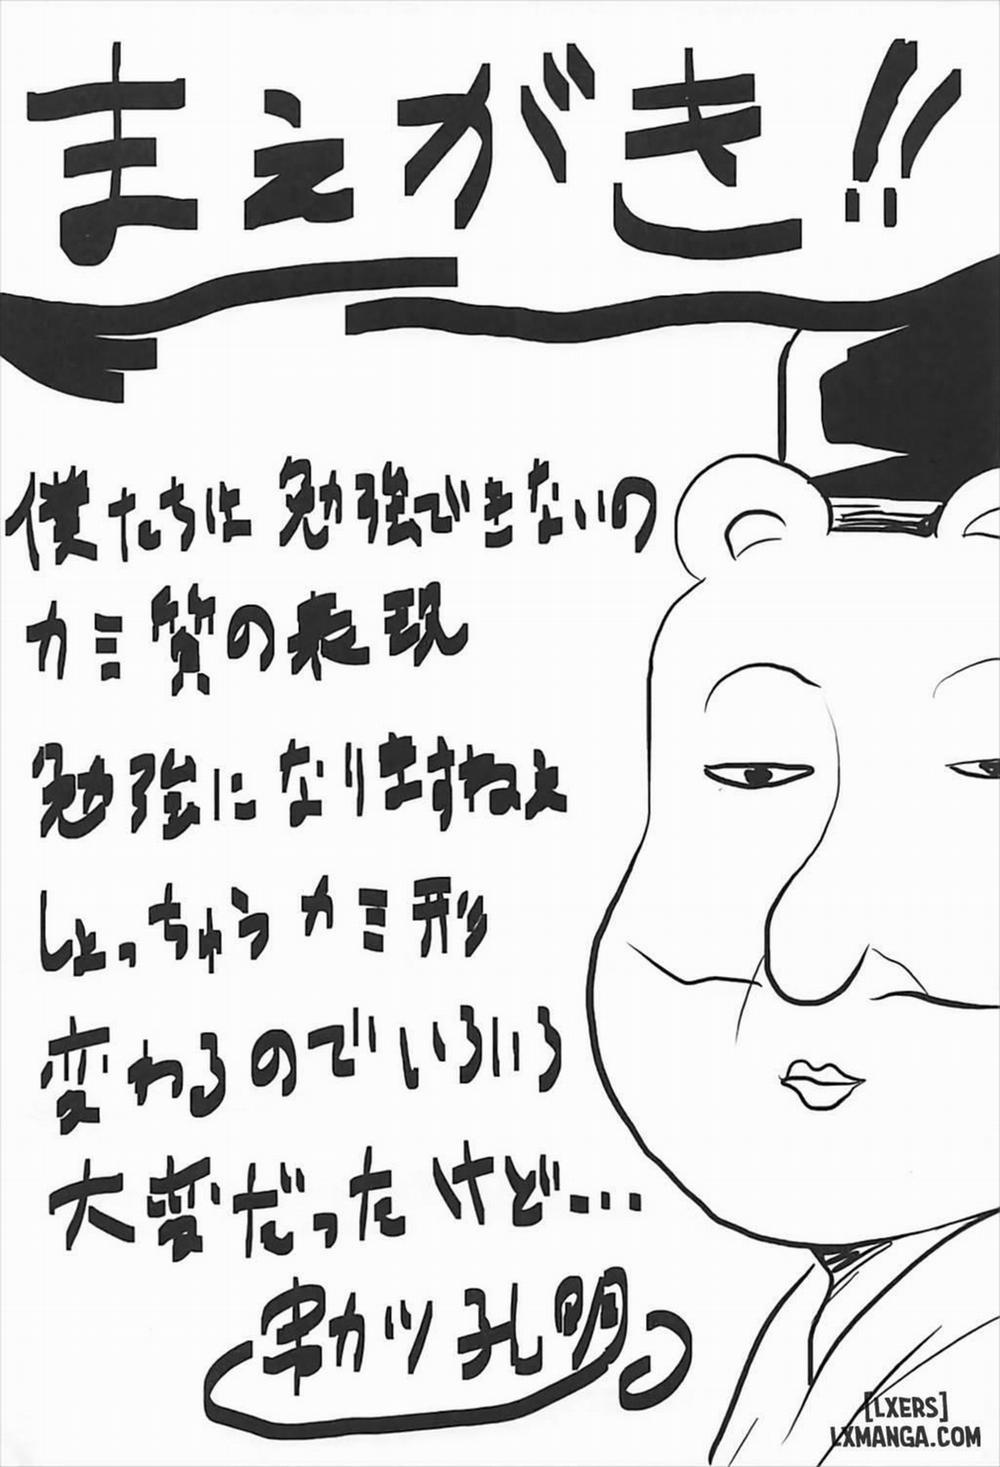 まえがき!!
僕たちは勉強できないの
カミ質の表現
勉強になりますねぇ
しょっちゅうカミ形
変わるのでいろいろ
大変だったけど…
串カツ孔明
[LXERS]
LXMANGA.COM